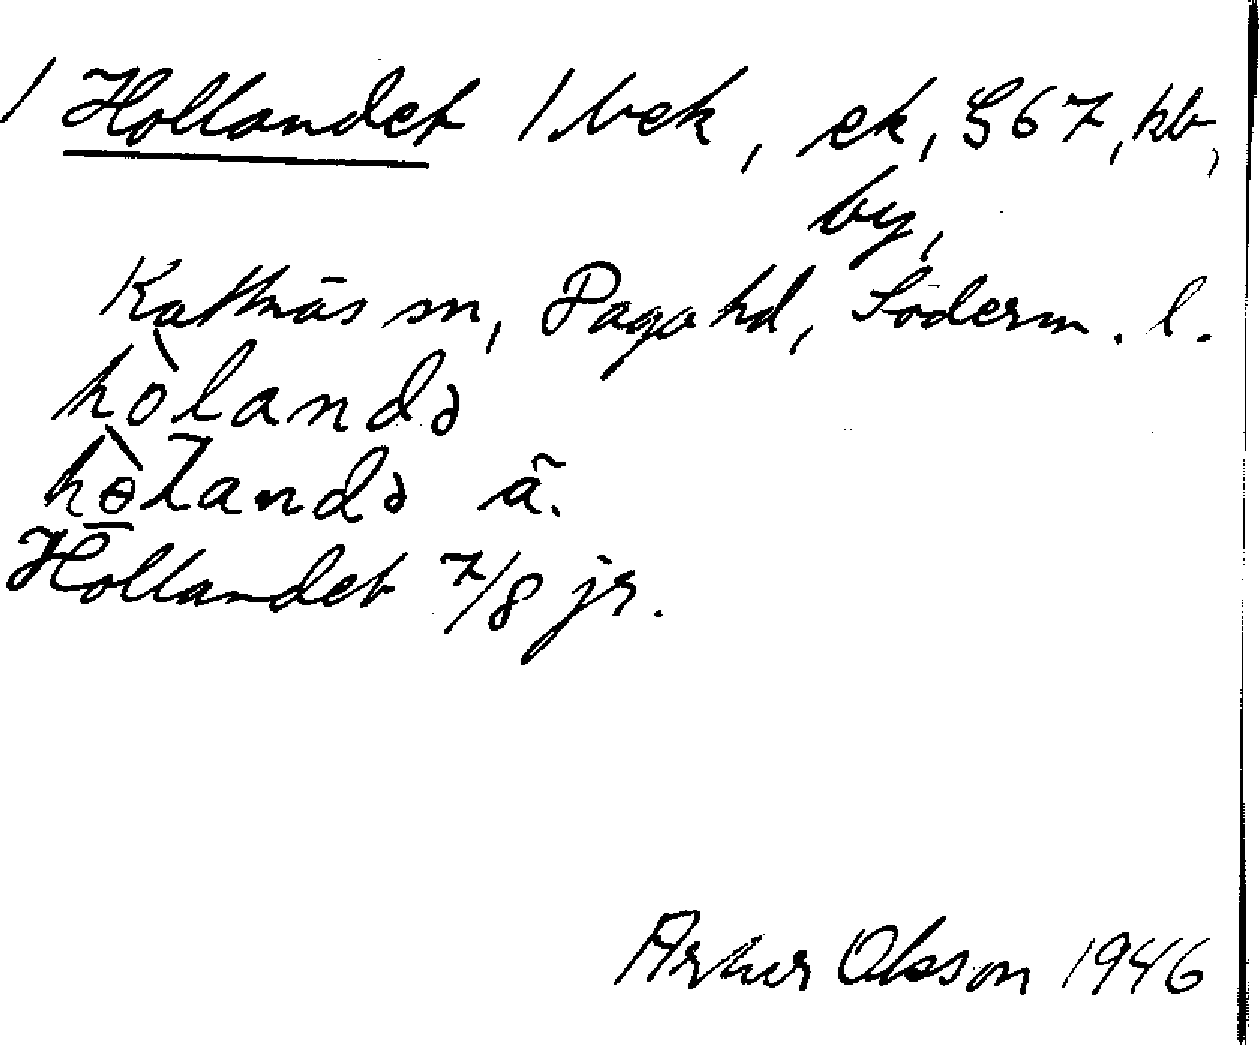 / Hollandet /. bek, ek, § 67, kb,
by,
Kattnäs sn, Daga hd, Söderm. l.
hòlandə
hɵ̀landə ä.
Hollandet 7/8 jr.
Arthur Olsson 1946